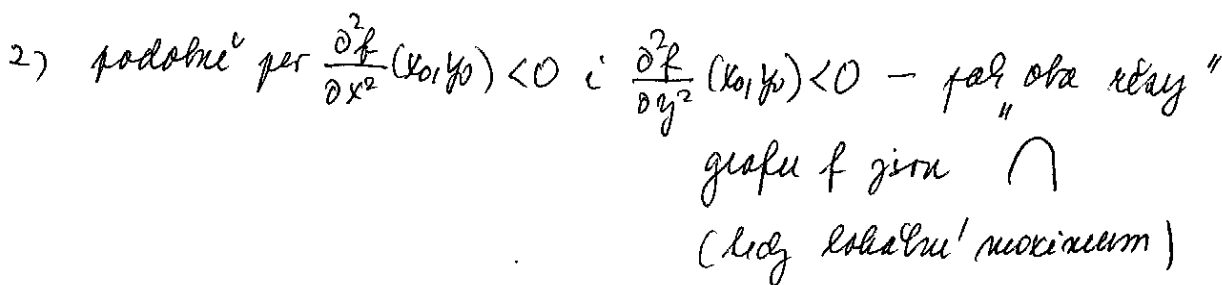 2) podobně per ∂²f/∂x² (x₀,y₀) < 0 i ∂²f/∂y² (x₀,y₀) < 0 – pak „oba řezy"
grafu f jsou ∩
(tedy lokální maximum)